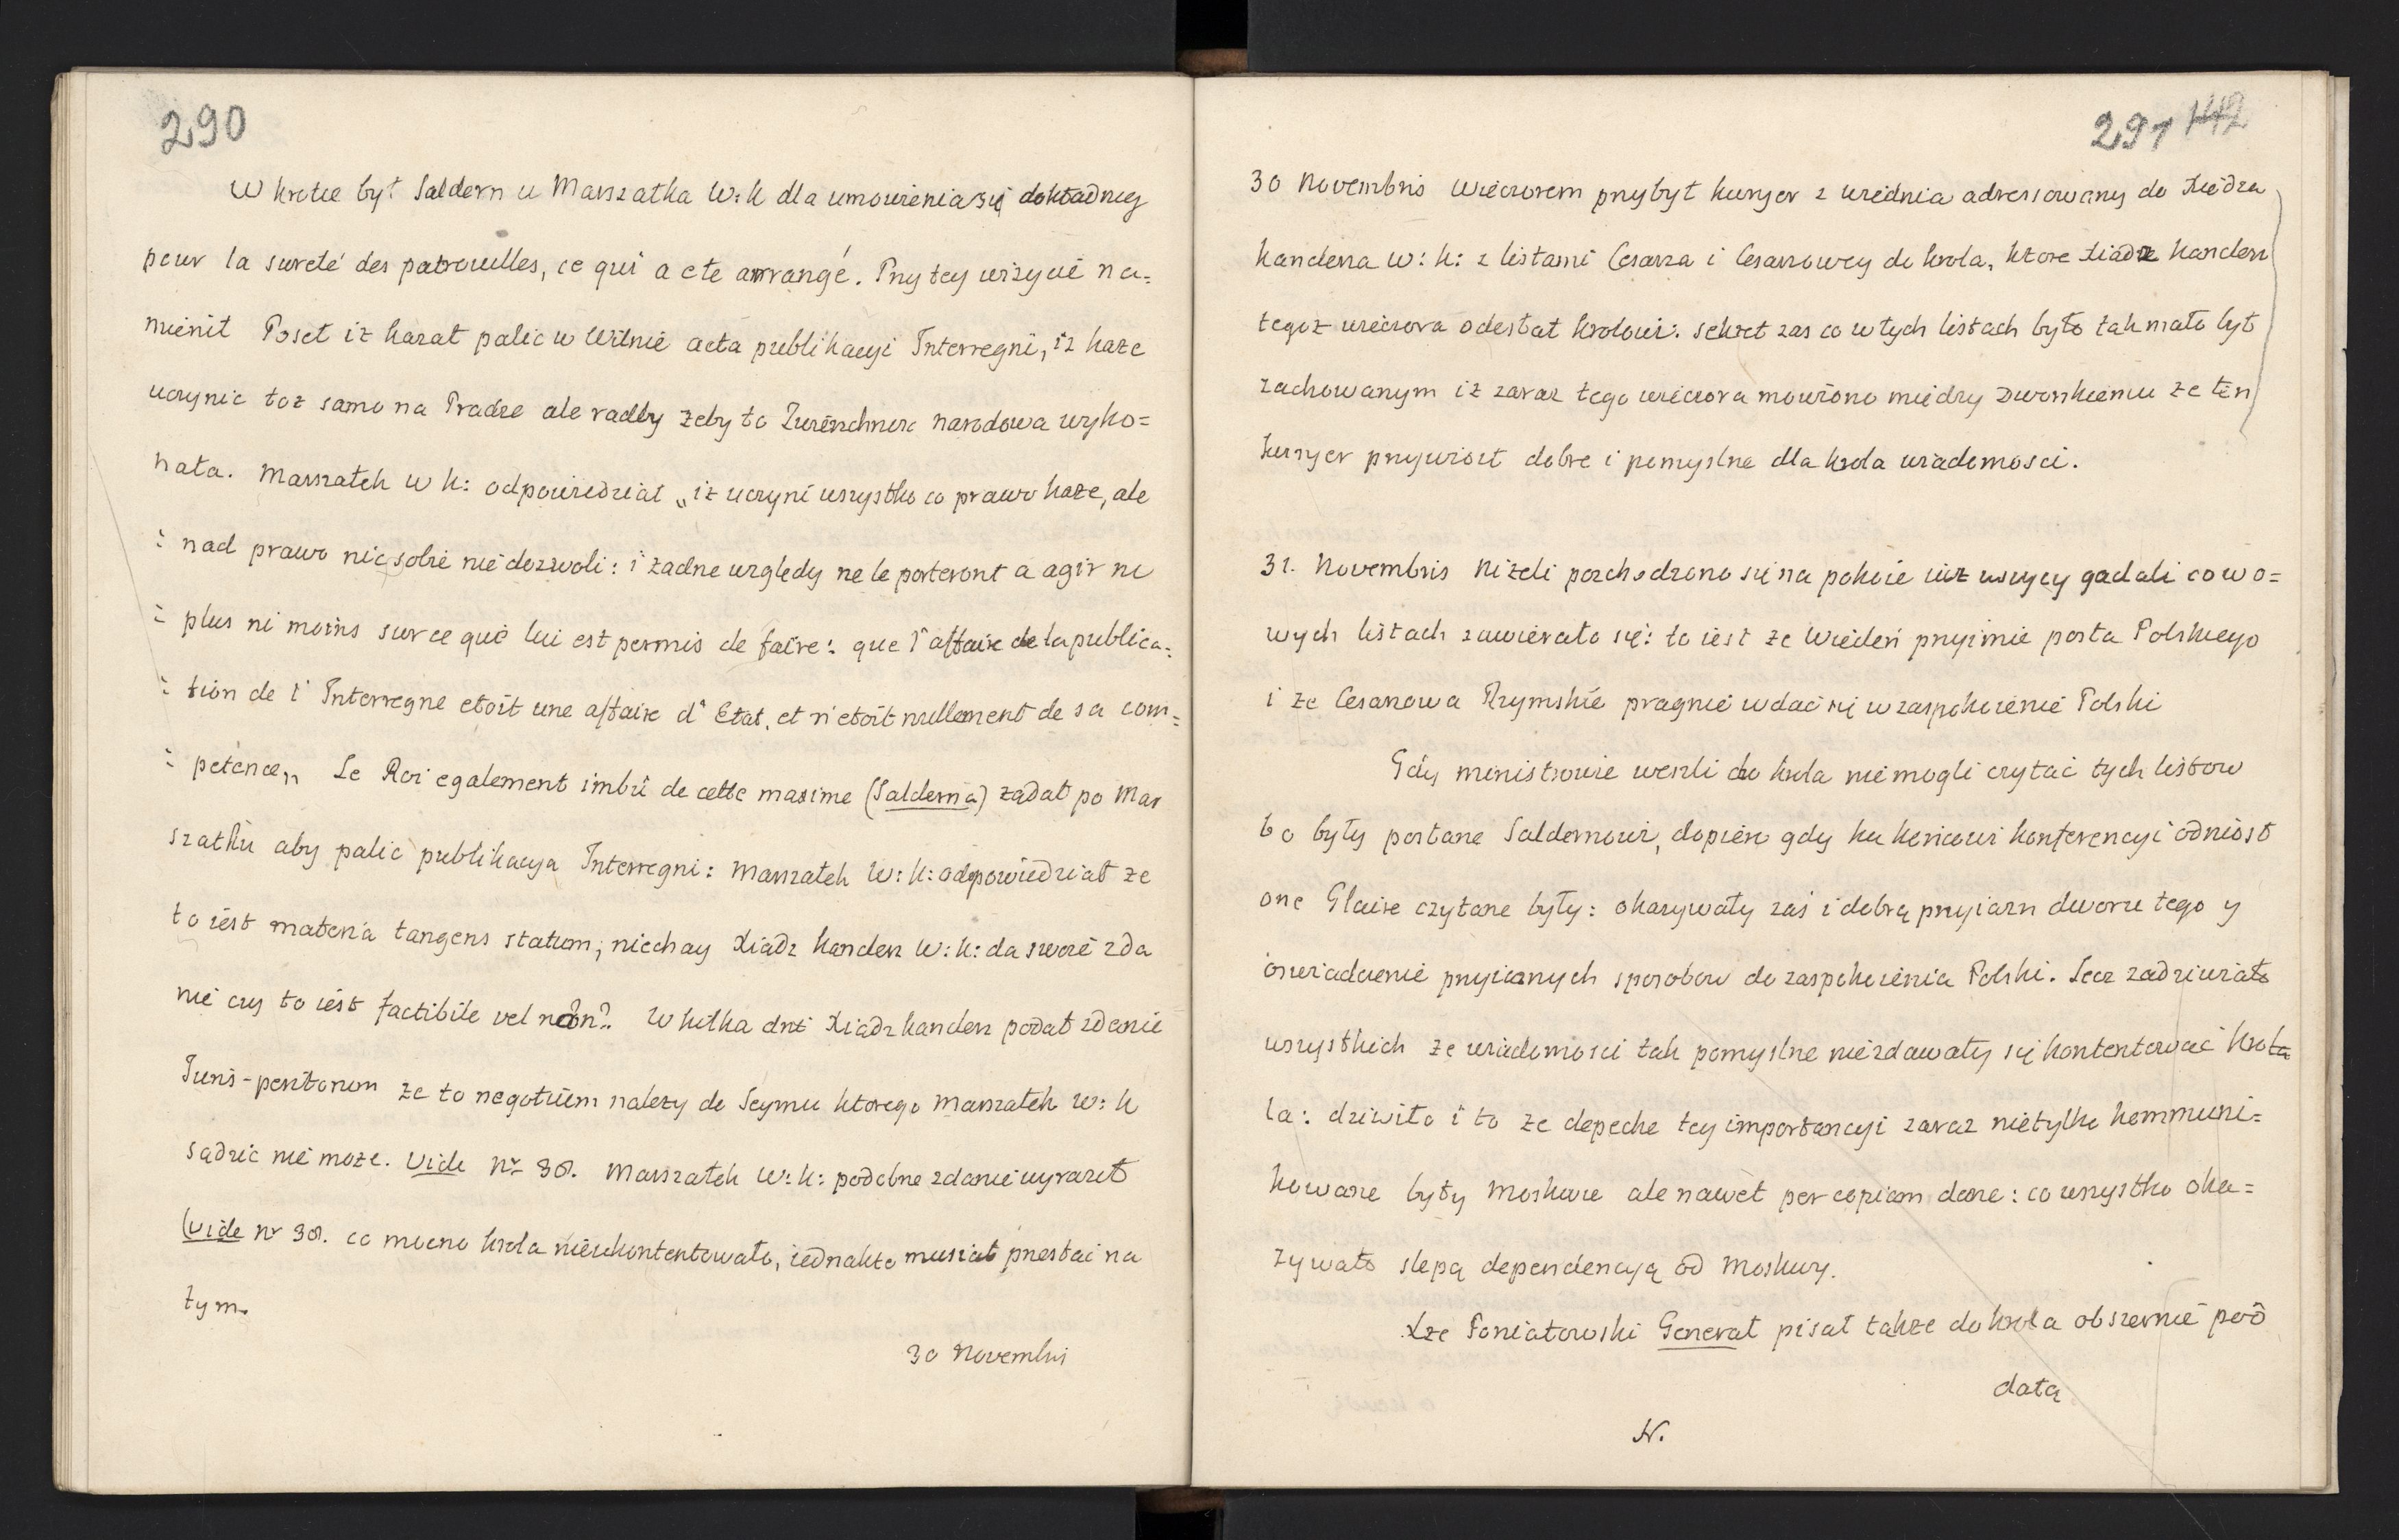 290
W krotce był Saldern u Marszałka W: K dla umowienia się dokładney
pour la sureté des patrouilles, ce qui a ete arrangé. Przy tey wizycie na=
mienił Poseł iż kazał palic w Wilnie acta publikacyi Interregni, iz kaze
uczynic toz samo na Pradze ale radby zeby to Zwierzchnosc narodowa wyko=
nała. Marszałek W K: odpowiedział „ iż uczyni wszystko co prawo każe, ale
: nad prawo nic sobie nie dozwoli: i żadne względy ne le porteront a agir ni
: plus ni moins sur ce qui lui est permis de faire: que l'affaire de la publica=
: tion de l'Interregne etoit une affaire d'Etat, et n'etoit nullement de sa com=
: petence„ Le Roi egalement imbû de cette maxime (Salderna) ządał po Mar
szałku aby palic publikacya Interregni: Marszałek W: K: odpowiedział ze
to iest materia tangens statum; niechay Xiądz Kanclerz W: K: da swoie zda
nie czy to iest factibile vel non? W kilka dni Xiądz Kanclerz podał zdanie
Juris-peritorum że to negotium należy do Seymu ktorego Marszałek W: K
sądzic nie może. Vide Nr 38. Marszałek W: K: podobne zdanie wyraził
(Vide Nr 38. co mocno krola nieukontentowało, iednakże musiał przestać na
tym.
30 Novembris
291 142
30 Novembris wieczorem przybył kuryer z Wiednia adressowany do Xiędza
Kanclerza W: K: z listami Cesarza i Cesarzowey do krola, ktore Xiądz Kanclerz
tegoż wieczora odesłał krolowi: sekret zas co w tych listach było tak mało był
zachowanym iż zaraz tego wieczora mowiono między Dworskiemi ze ten
kuryer przywiozł dobre i pomyslne dla krola wiadomosci.
31. Novembris Nizeli poschodzono się na pokoie iuż wszyscy gadali co w o=
wych listach zawierało się: to iest ze Wiedeń przyimie posła Polskiego
i ze Cesarzowa Rzymskie pragnie wdać się w zaspokoienie Polski
Gdy ministrowie weszli do krola nie mogli czytać tych listow
bo były posłane Saldernowi, dopiero gdy ku koncowi konferencyi odniosł
one Glaire czytane były: okazywały zaś i dobrą przyiazn dworu tego y
oswiadczenie przyiaznych sposobow do zaspokoienia Polski. Lecz zadziwiało
wszystkich ze wiadomosci tak pomyslne niezdawały się kontentować krola
la: dziwiło i to ze depeche tey importancyi zaraz nietylko kommuni=
kowane były Moskwie ale nawet per copiam dane: co wszystko oka=
zywało slepą dependencyą od Moskwy.
Xże Poniatowski Generał pisał także do krola obszernie pod
datą
N.